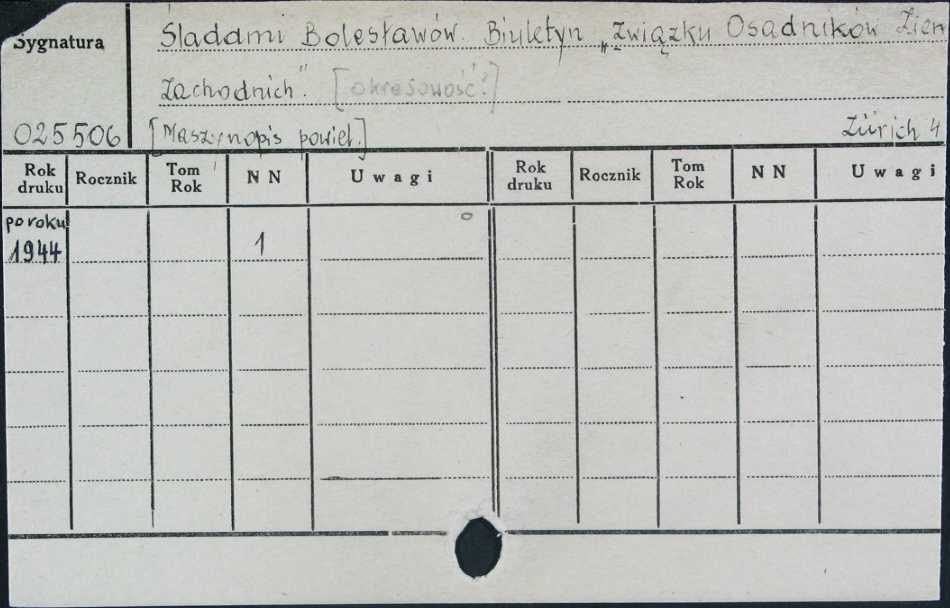 Sygnatura
Śladami Bolesławów. Biuletyn „Związku Osadników Ziem
Zachodnich." [okresowość?]
025506 [Maszynopis powiel.] Zürich 4
Rok druku Rocznik Tom Rok N N Uwagi Rok druku Rocznik Tom Rok N N Uwagi
po roku
1944 1